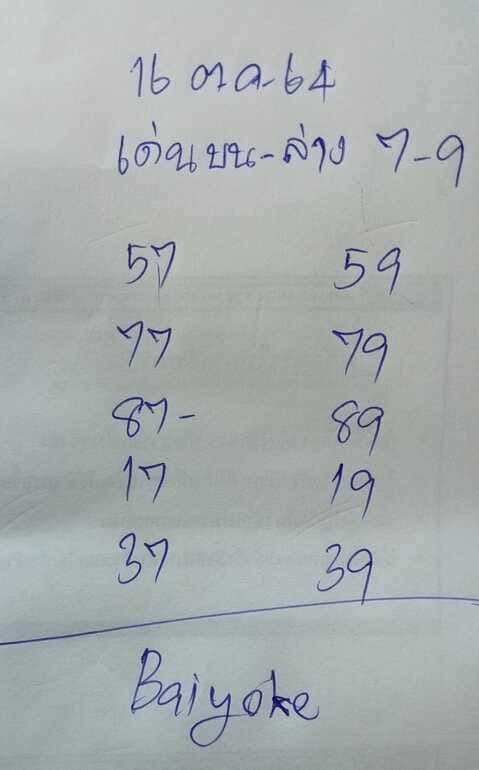 16 ต.ค. 64
เด่นบน-ล่าง 7-9
57 59
77 79
87- 89
17 19
37 39
Baiyoke